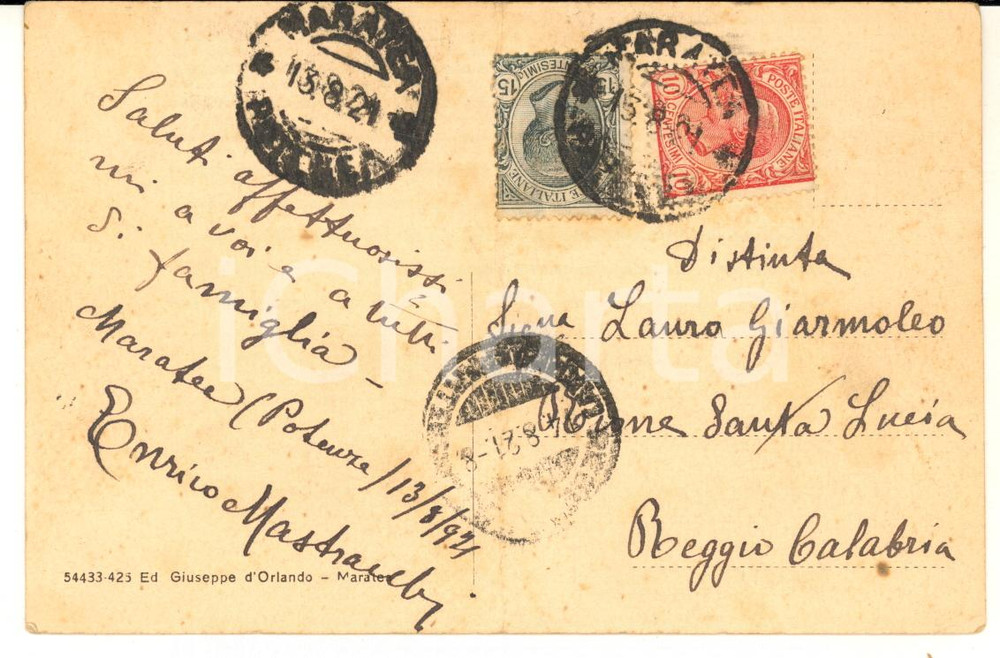 MARATEA
13.8.21
POTENZA
15 CENTESIMI 15
POSTE ITALIANE
MARATEA
13.8.21
10 CENTESIMI 10
POSTE ITALIANE
Saluti affettuosissi
mi a voi e a tutti
di famiglia –
Maratea (Potenza) 13/8/921
Enrico
Distinta
Sig.na Laura Giarmoleo
Rione Santa Lucia
Reggio Calabria
17.8.21
iCharta
54433-425 Ed Giuseppe d'Orlando – Maratea